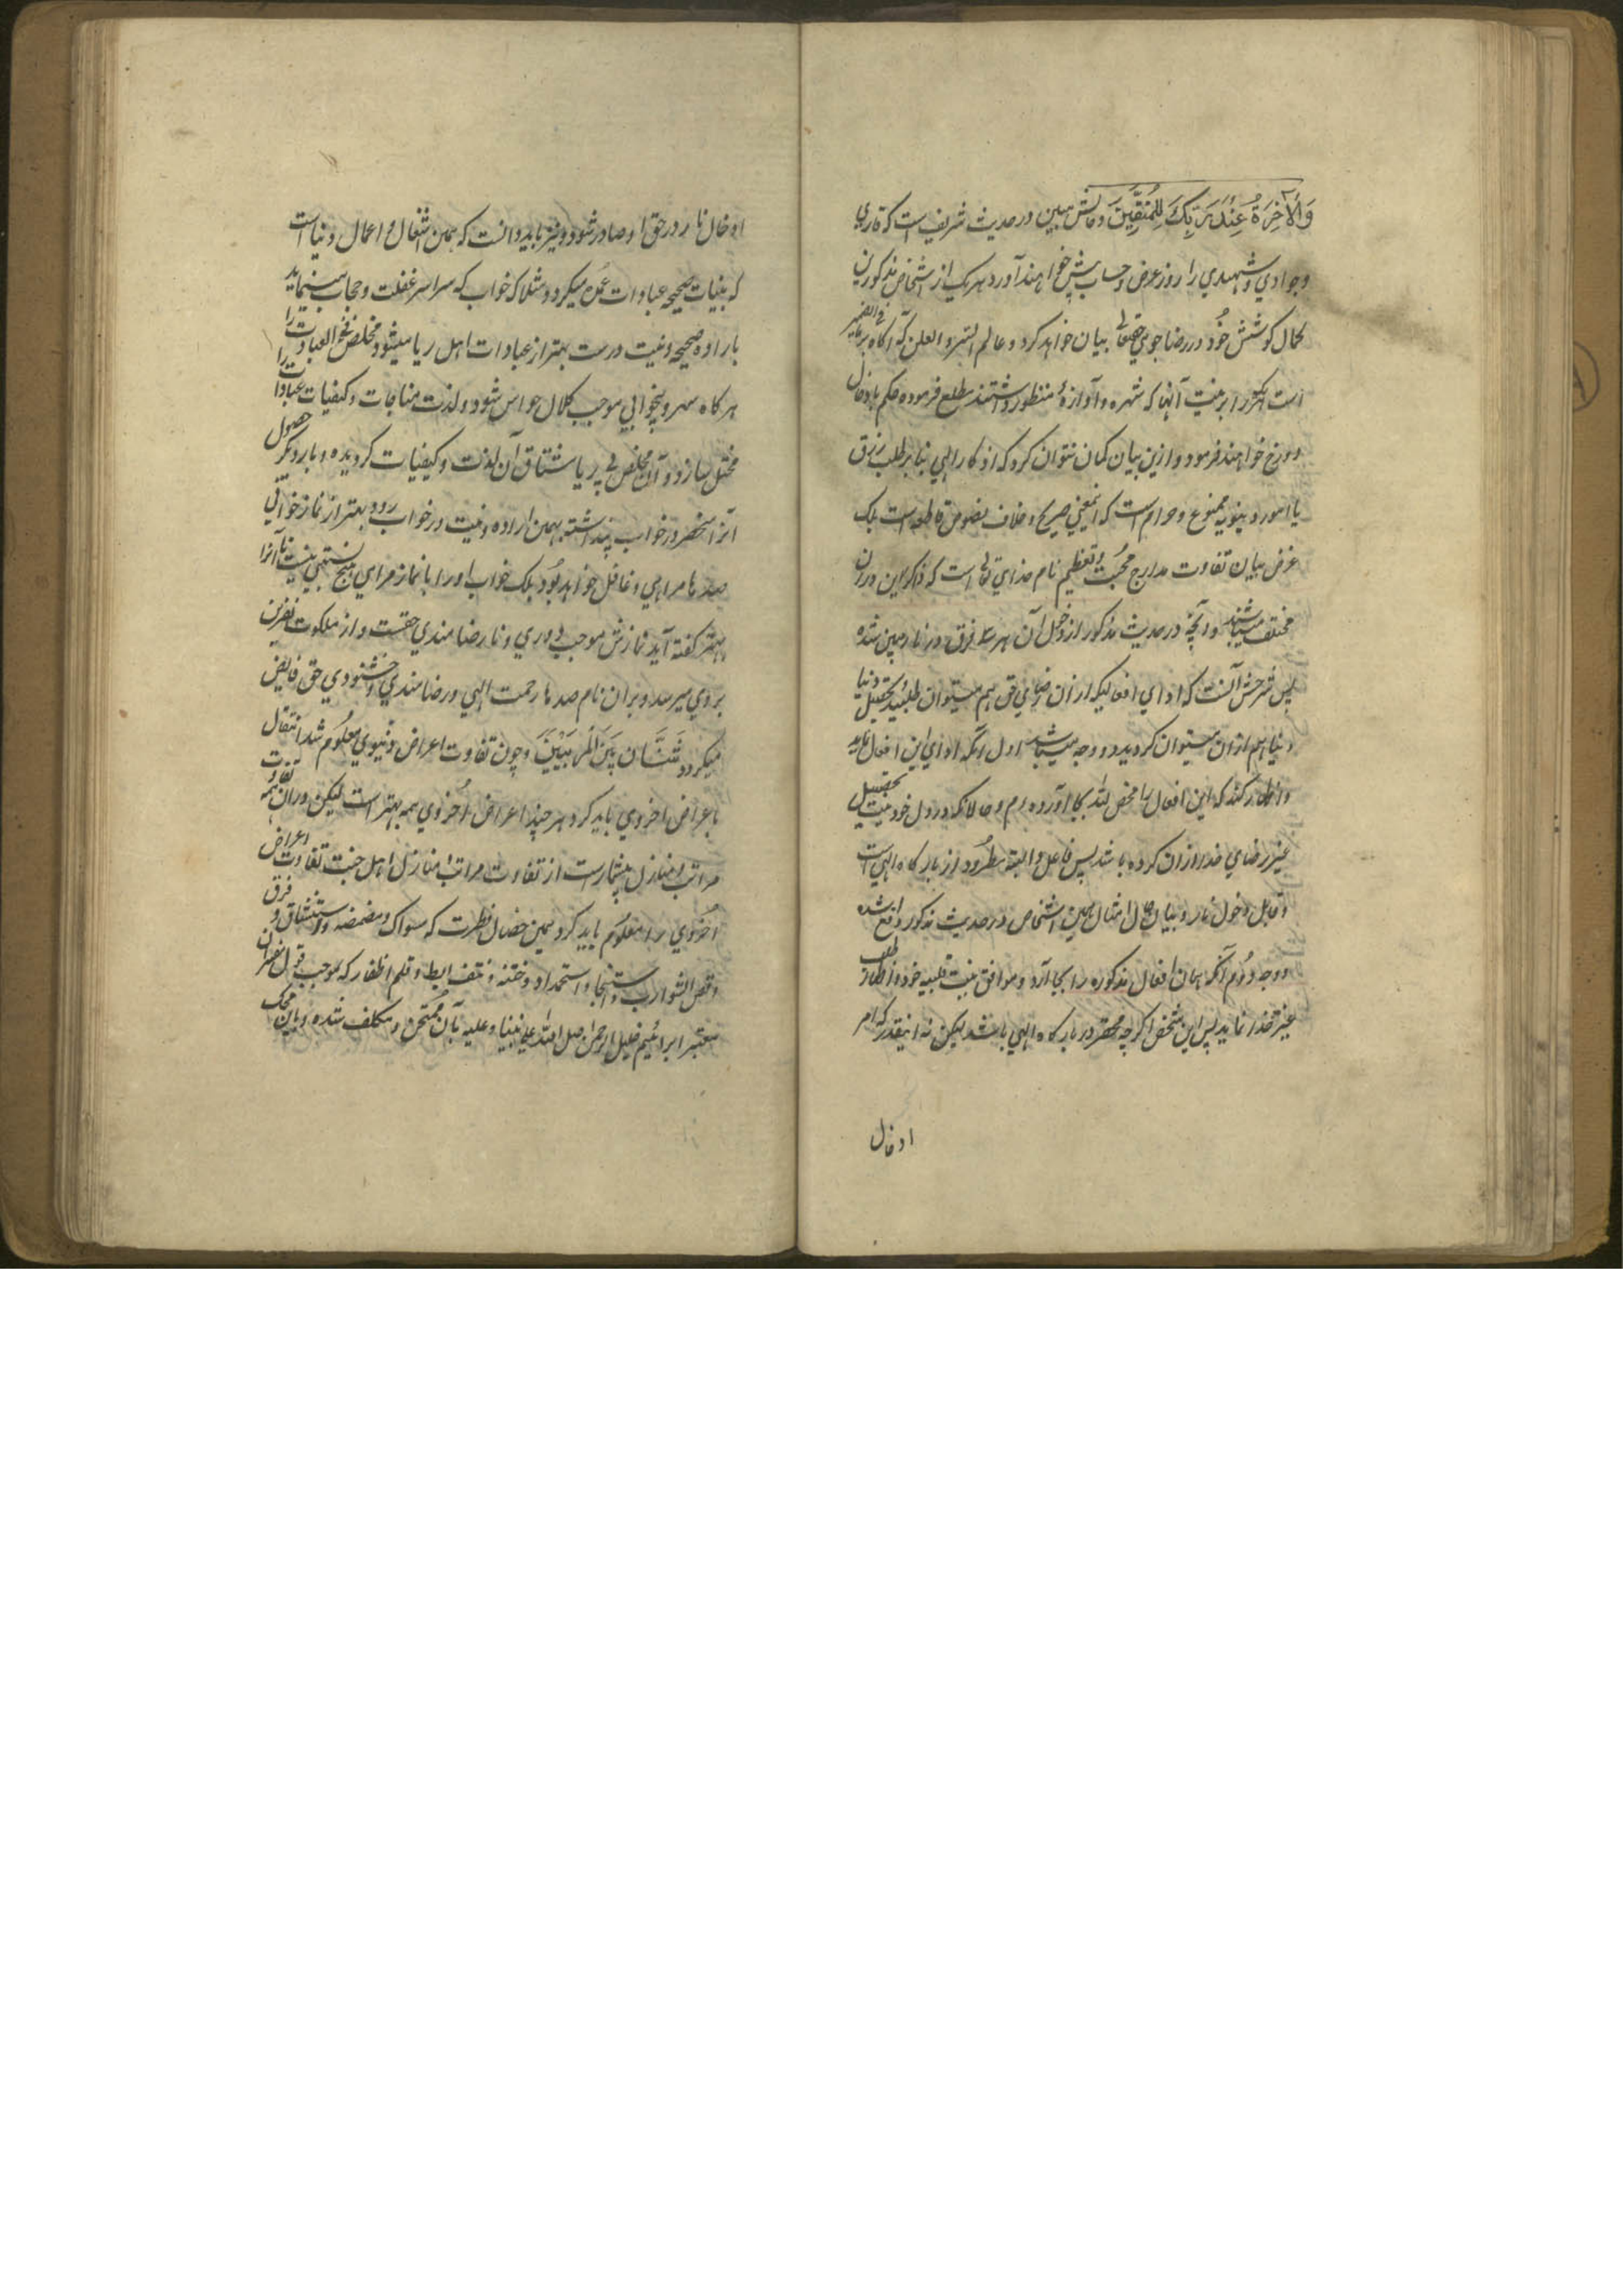 وَالْآخِرَةُ عِنْدَ رَبِّكَ لِلْمُتَّقِينَ و مبین در حدیث شریف است که قاری
و جوادی و شهیدی را روز عرض و حساب پیش خواهند آورد هر یک از اشخاص مذکورین
کمال کوشش خود در رضاجوی حقتعالی بیان خواهد کرد و عالم السر و العلن که آگاه بر ما فی الضمیر
است را بر نیت آنها که شهره و آوازهٔ منظور داشتند مطلع فرموده حکم بادخال
دوزخ خواهند فرمود و ازین بیان گمان نتوان کرد که اذکار الهی بنا بر طلب رزق
یا امور دینویه ممنوع و حرام است که اینمعنی صریح خلاف نصوص قاطعه است بلکه
غرض بیان تفاوت مدارج محبت و تعظیم نام خدای تعالی است که ذاکراین در آن
مختلف میباشند و آنچه در حدیث مذکور از دخول آن هر سه فرق در نار مبین شده
پس شرحش آنست که ادای افعالیکه از آن رضای حق هم میتوان طلبید و تحصیل دنیا
دنیا هم از آن میتوان کردید دو وجه میباشد اول آنکه ادای این افعال نماید
و اظهار کند که این افعال را محض لله بجا آورده ام و حالانکه در دل خود نیت تحصیل
غیر رضای خدا از آن کرده باشد پس فاعل و البته مطرود از بارگاه الهی است
و قابل دخول نار و بیان حال امثال همین اشخاص در حدیث مذکور واقع شده
و وجه دوم آنکه همان افعال مذکوره را بجا آرد و موافق نیت قلبیه خود اظهار طلب
غیر خدا نماید پس این شخص اگرچه محقر در بارگاه الهی باشد لیکن نه اینقدر که امر
ادخال
ادخال نار در حق او صادر شود و نیز باید دانست که همین اشغال و اعمال دنیا است
که بنیات صحیحه عبادات عمده میگردد مثلا که خواب که سراسر غفلت و حجاب مینماید
باراده صحیحه و نیت درست بهتر از عبادات اهل ریا میشود مخلص فخ العبادت را
هرگاه سهر و بیخوابی موجب کلال حواس شود و لذت مناجات و کیفیات عبادات را
مختل سازد و آن مخلص بی ریا مشتاق آن لذت و کیفیات گردیده و بار دیگر حصول
آنرا منحصر در خواب پنداشته بهمین اراده و نیت در خواب رود بهتر از نماز خوانی
صدها مرایی و غافل خواهد بود بلکه خواب او را با نماز مرایی هیچ نسبتی نیست تا آنرا
بهتر گفته آید نمازش موجب دوری و نارضامندی حقست و از ملکوت نفرین
بروی میرسد و بر آن نام صدها رحمت الهی و رضامندی و خشنودی حق فایض
میگردد شَتَّانَ بَيْنَ الْمَرْتَبَتَيْنِ و چون تفاوت اعراض دنیوی معلوم شد انتقال
باعراض اخروی باید کرد هر چند اعراض اخروی همه بهتر است لیکن در آن همه تفاوت
مراتب و منازل بیشمار است از تفاوت مراتب منازل اهل جنت تفاوت اعراض
اخروی را معلوم باید کرد همین خصال فطرت که مسواک و مضمضه و استنشاق و فرق
و قص الشوارب و استنجا و استحداد و ختنه و نتف ابط و قلم اظفار که بموجب قول مفسران
معتبر ابراهیم خلیل الرحمن صل الله علی نبینا و علیه بآن ممتحن و مکلف شده و باین محک